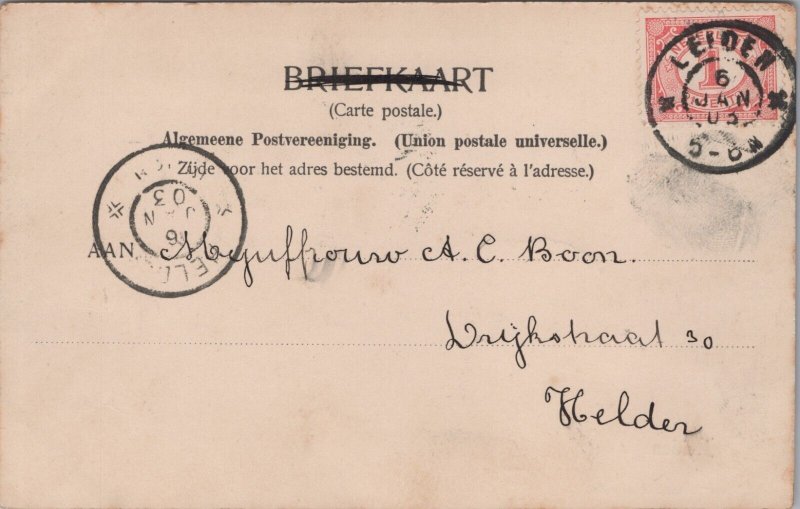 NEDERLAND
1
LEIDEN
6
JAN
03
5-6N
BRIEFKAART
(Carte postale.)
Algemeene Postvereeniging. (Union postale universelle.)
Zijde voor het adres bestemd. (Côté réservé à l'adresse.)
6
JAN
03
AAN Mejuffrouw A. C. Boon.
Dijkstraat 30
Helder